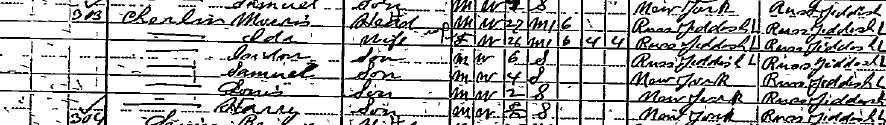 Samuel Son M W 8 S New York Russ Yiddish
303 Cherlin Morris Head M W 27 M1 6 Russ Yiddish Russ Yiddish
Ida Wife F W 26 M1 6 4 4 Russ Yiddish Russ Yiddish
Son M W 6 S Russ Yiddish Russ Yiddish
Samuel Son M W 4 S New York Russ Yiddish
Louis Son M W 2 S New York Russ Yiddish
Harry Son M W S New York Russ Yiddish
304